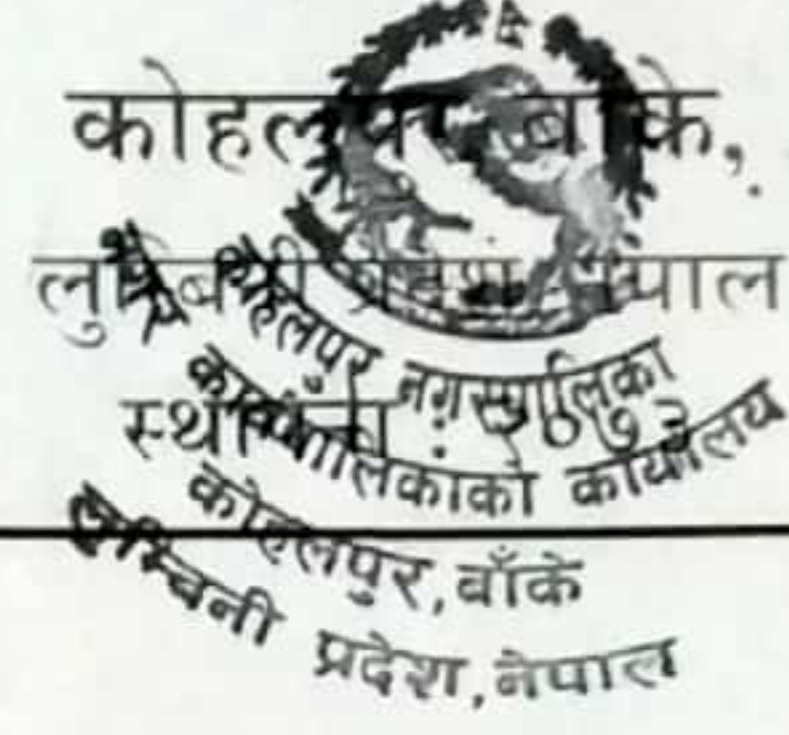 कोहलपुर बाँके,
लुम्बिनी प्रदेश नेपाल
स्थापना : २०७३
कोहलपुर नगरपालिका
कार्यपालिकाको कार्यालय
कोहलपुर, बाँके
लुम्बिनी प्रदेश, नेपाल